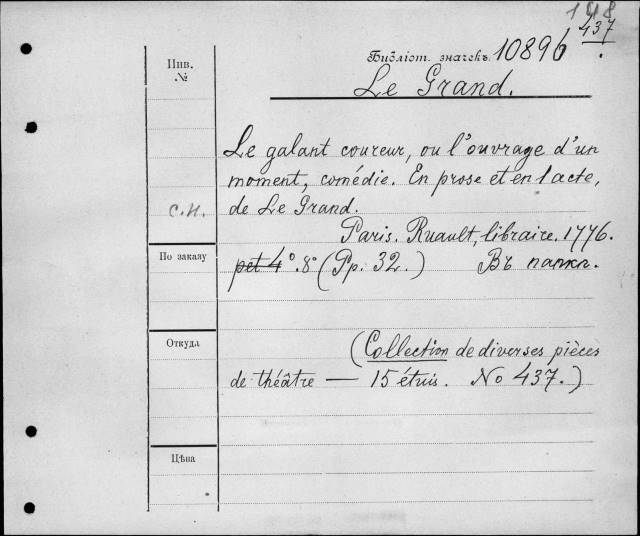 148
437
Библіот. значекъ 10896
Le Grand.
Инв.
№
Le galant coureur, ou l'ouvrage d'un
moment, comédie. En prose et en 1 acte,
de Le Grand.
с.н.
Paris. Ruault, libraire. 1776.
По заказу
pet 4°. 8° (Pp. 32.) Въ папкѣ.
Откуда
(Collection de diverses pièces
de théâtre — 15 étuis. No 437.)
Цѣна